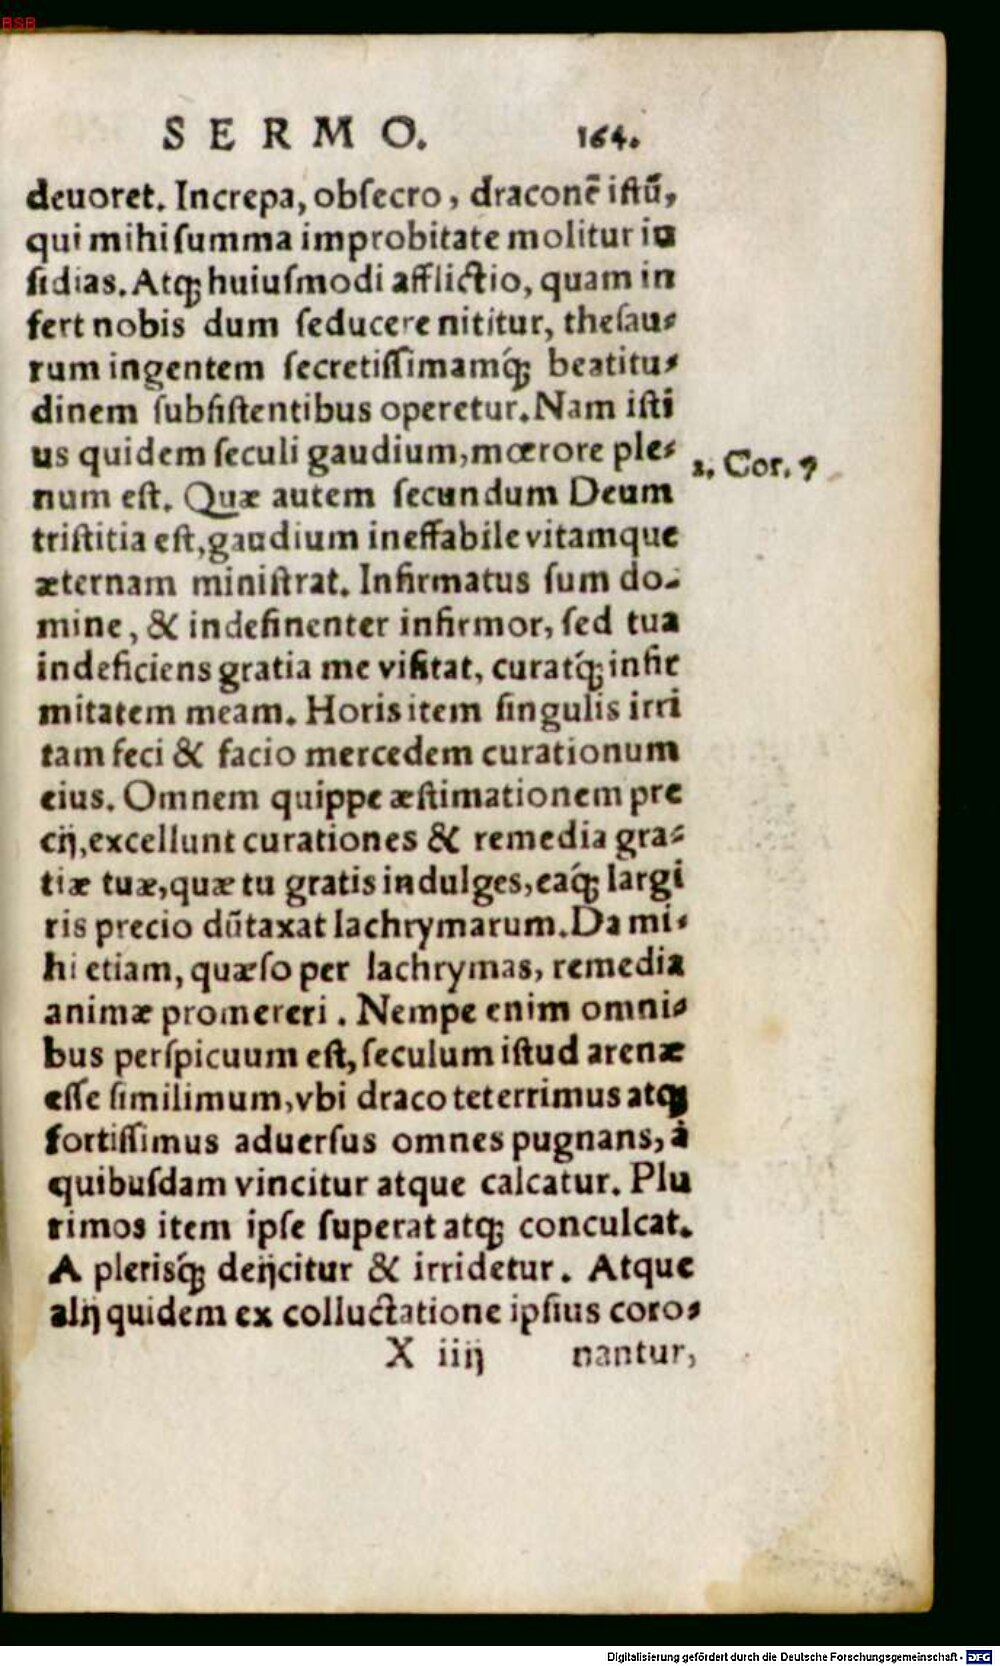 BSB
SERMO. 164.
deuoret. Increpa, obſecro, draconē iſtū,
qui mihi ſumma improbitate molitur in
ſidias. Atq; huiuſmodi afflictio, quam in
fert nobis dum ſeducere nititur, theſau-
rum ingentem ſecretiſſimamq́; beatitu-
dinem ſubſiſtentibus operetur. Nam iſti
us quidem ſeculi gaudium, mœrore ple-
2. Cor. 7
num eſt. Quæ autem ſecundum Deum
triſtitia eſt, gaudium ineffabile vitamque
æternam miniſtrat. Infirmatus ſum do-
mine, & indeſinenter infirmor, ſed tua
indeficiens gratia me viſitat, curatq́; infir
mitatem meam. Horis item ſingulis irri
tam feci & facio mercedem curationum
eius. Omnem quippe æſtimationem pre
cij, excellunt curationes & remedia gra-
tiæ tuæ, quæ tu gratis indulges, eaq́; largi
ris precio dūtaxat lachrymarum. Da mi-
hi etiam, quæſo per lachrymas, remedia
animæ promereri. Nempe enim omni-
bus perſpicuum eſt, ſeculum iſtud arenæ
eſſe ſimilimum, vbi draco teterrimus atq;
fortiſſimus aduerſus omnes pugnans, à
quibuſdam vincitur atque calcatur. Plu
rimos item ipſe ſuperat atq; conculcat.
A pleriſq́; deijcitur & irridetur. Atque
alij quidem ex colluctatione ipſius coro-
X iiij nantur,
Digitalisierung gefördert durch die Deutsche Forschungsgemeinschaft - DFG